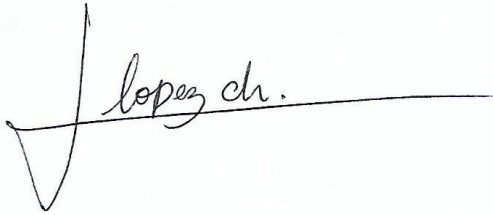 J lopez ch.